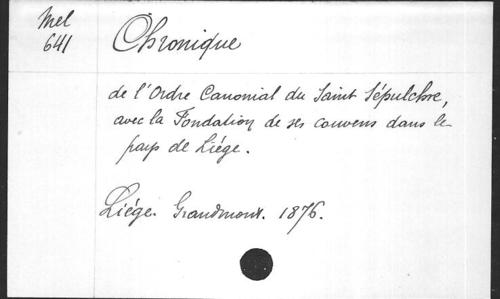 Mel
641
Chronique
de l'Ordre Canonial du Saint Sépulchre,
avec la Fondation de ses couvens dans le
pays de Liége.
Liége. Grandmont. 1876.